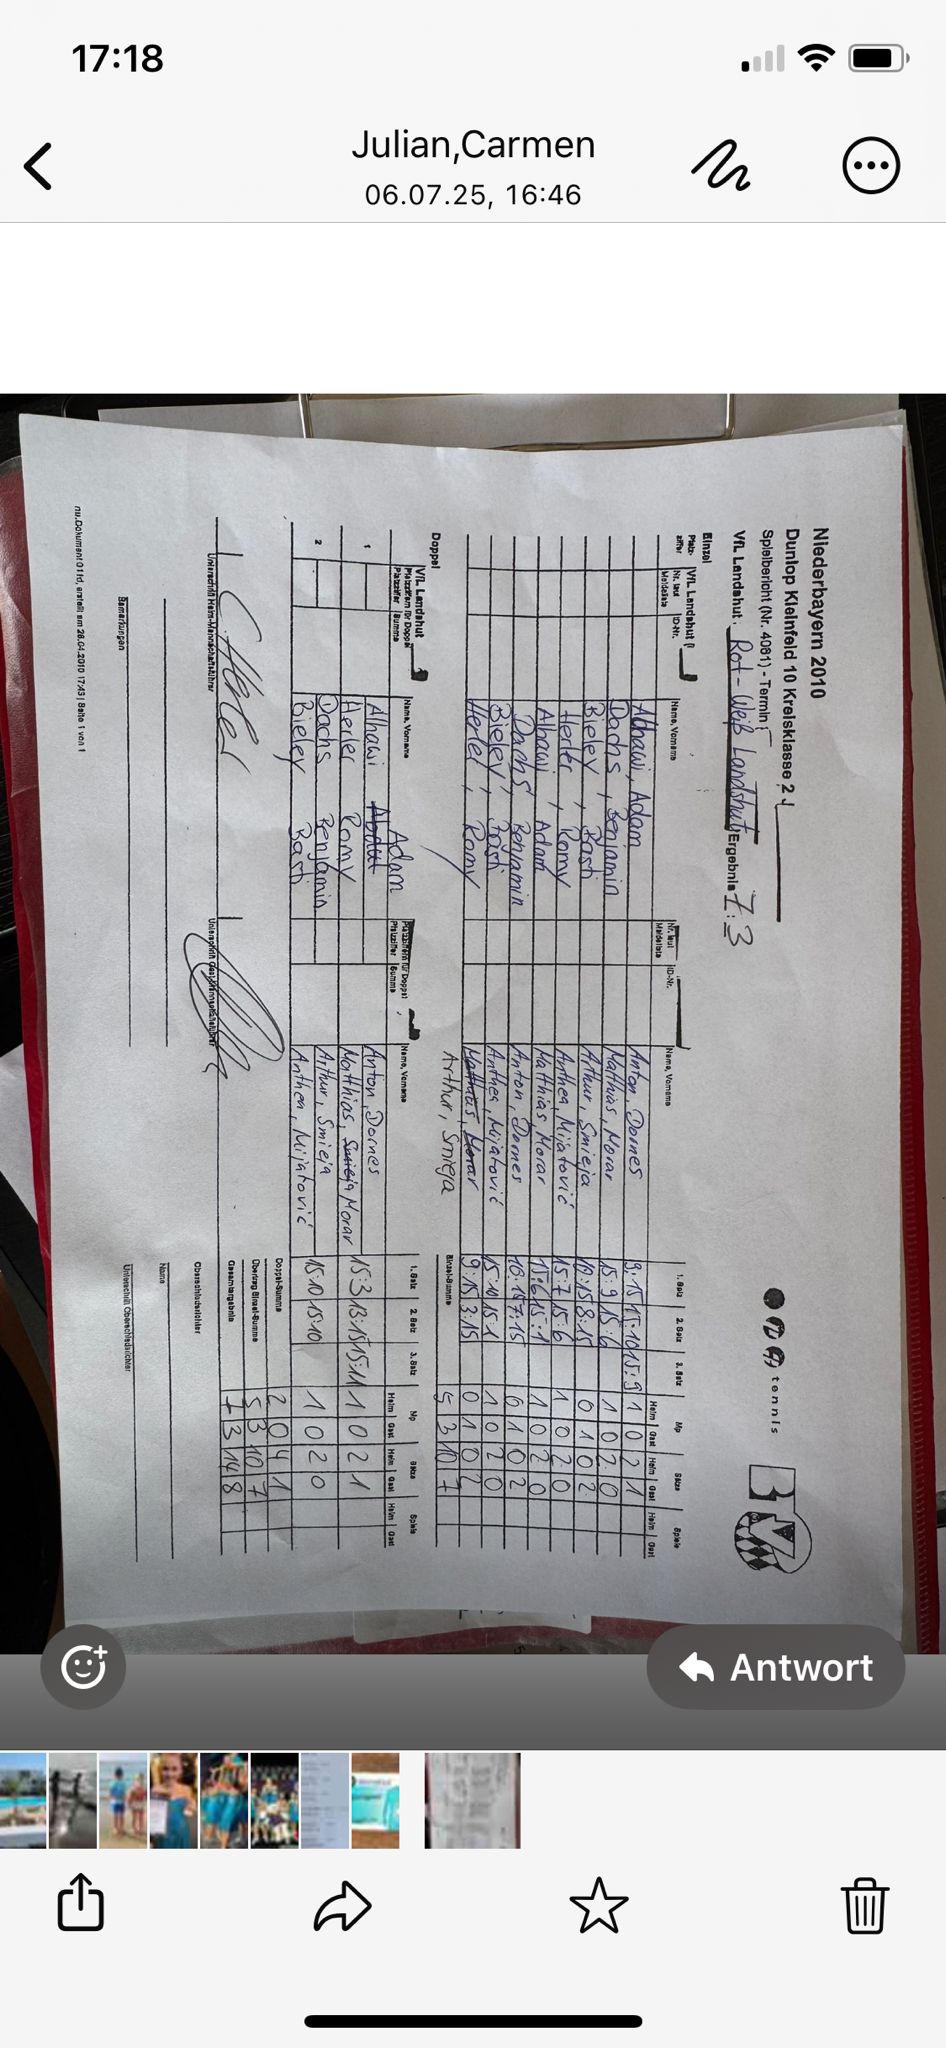 17:18
Julian,Carmen
06.07.25, 16:46
Niederbayern 2010
Dunlop Kleinfeld 10 Kreisklasse 2
Spielbericht (Nr. 4081) - Termin
VfL Landshut : Rot-Weiß Landshut, Ergebnis 7:3
tennis
BTV
Einzel
Platz-ziffer VfL Landshut (I Nr. laut Meldeliste ID-Nr. Name, Vorname Nr. laut Meldeliste ID-Nr. Name, Vorname 1. Satz 2. Satz 3. Satz Mp Heim Gast Sätze Heim Gast Spiele Heim Gast
Alhawi, Adam Anton, Dornes 9:15 15:10 15:9 1 0 2 1
Dachs, Benjamin Matthias, Morar 15:9 15:6 1 0 2 0
Bieley, Basti Arthur, Smieja 10:15 8:15 0 1 0 2
Herler, Romy Anthea, Mijatović 15:7 15:6 1 0 2 0
Alhawi, Adam Matthias, Morar 15:6 15:1 1 0 2 0
Dachs, Benjamin Anton, Dornes 7:15 0 1 0 2
Bieley, Basti Anthea, Mijatović 15:10 15:1 1 0 2 0
Herler, Romy Matthias, Morar 9:15 3:15 0 1 0 2
Arthur, Smieja Einzel-Summe 5 3 10 7
Doppel
VfL Landshut Platzziffern für Doppel Platzziffer Summe Name, Vorname Platzziffern für Doppel Platzziffer Summe Name, Vorname 1. Satz 2. Satz 3. Satz Mp Heim Gast Sätze Heim Gast Spiele Heim Gast
Adam
1 Alhawi Anton, Dornes
Herler Romy Matthias, Smieja Morar 15:3 13:15 15:11 1 0 2 1
2 Dachs Benjamin Arthur, Smieja
Bieley Basti Anthea, Mijatović 15:10 15:10 1 0 2 0
Doppel-Summe 2 0 4 1
Übertrag Einzel-Summe 5 3 10 7
Gesamtergebnis 7 3 14 8
Unterschrift Heim-Mannschaftsführer Unterschrift Gast-Mannschaftsführer Oberschiedsrichter
Name
Bemerkungen Unterschrift Oberschiedsrichter
nu.Dokument 01fd, erstellt am 28.04.2010 17:43 | Seite 1 von 1
Antwort